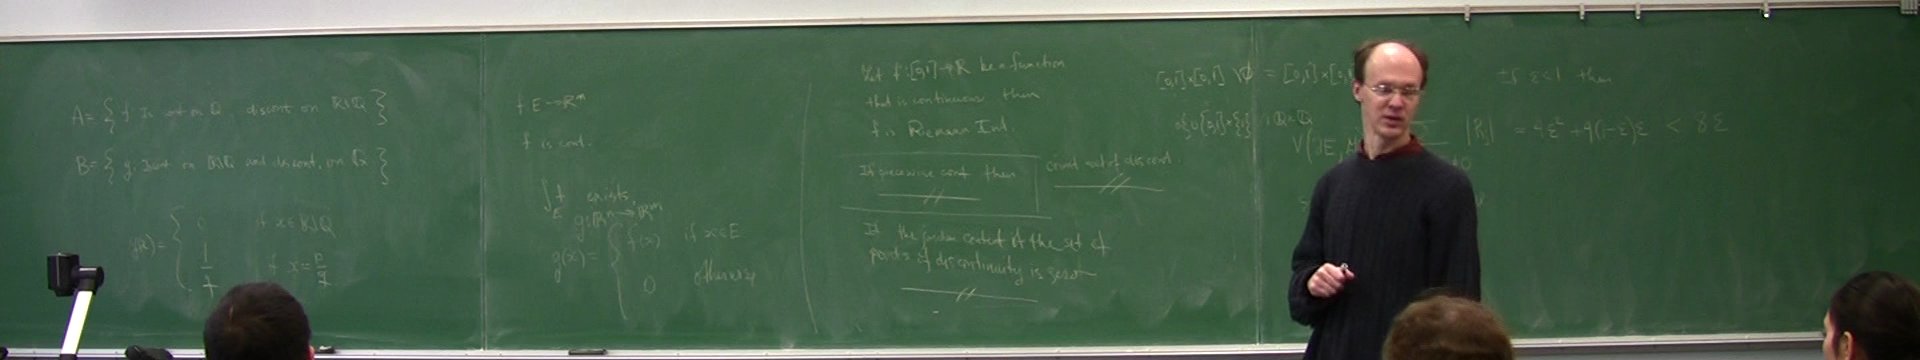 A = { f is cont on Q, discont on R\Q }
B = { g is cont on R\Q and discont. on Q }
f(x) = { 0 if x ∈ R\Q
1/q if x = p/q
f E → Rᵐ
f is cont.
∫_E f exists,
g: Rⁿ → Rᵐ
g(x) = { f(x) if x ∈ E
0 otherwise
Let f: [0,1] → R be a function
that is continuous then
f is Riemann Int.
If piecewise cont then
count set of discont.
If the Jordan content of the set of
points of discontinuity is zero
[0,1]×[0,1] \ ∅ = [0,1]×[0,
Q×Q
V(∂E,
|Rⱼ| = 4ε² + 4(1-ε)ε < 8ε
If ε<1 then